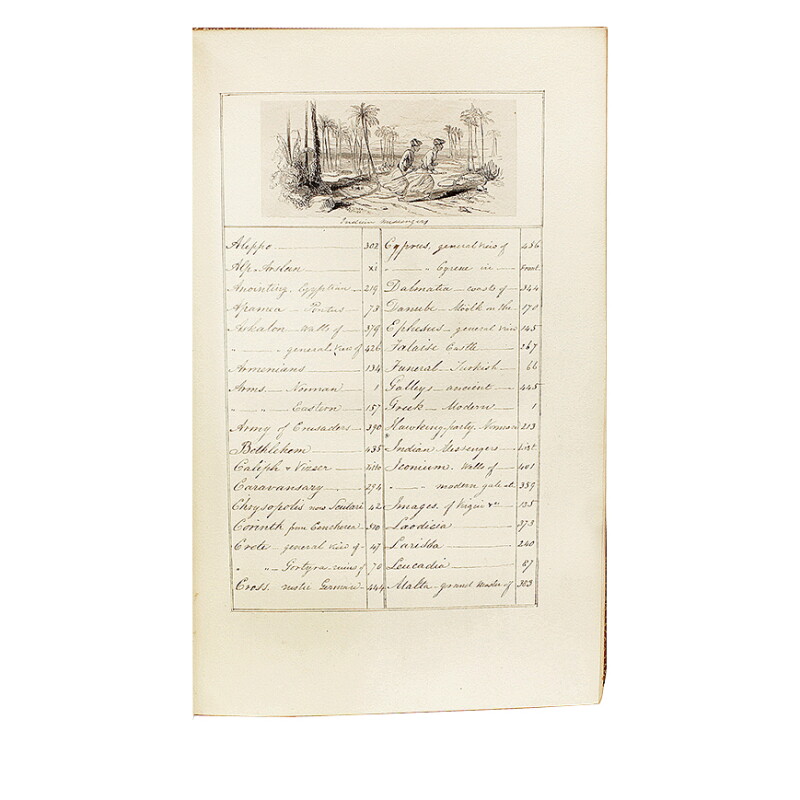 Indian Messengers
Aleppo 302
Alp Arslan xi
Anointing. Egyptian 219
Apamea - Pontus 73
Askalon - walls of 379
" - general View of 426
Armenians 134
Arms - Norman 1
" - " Eastern 157
Army of Crusaders 390
Bethlehem 435
Caliph & Vizier Title
Caravansary 294
Chrysopolis now Scutari 42
Corinth from Cenchrea
Crete - general View of 47
" " Gortyna - ruins of 70
Cross. rustic German 444
Cyprus, general View of 456
" " Cyrene in Front
Dalmatia - coasts of 344
Danube - Moölk on the 170
Ephesus - general View 145
Falaise Castle 267
Funeral - Turkish 66
Galleys - ancient 445
Greek - Modern 1
Hawking party. Norman 213
Indian Messengers List
Iconium. Walls of 401
" - modern gate at 359
Images of Virgin &c 135
Laodicia 373
Larissa 240
Leucadia 67
Malta - grand Master of 303